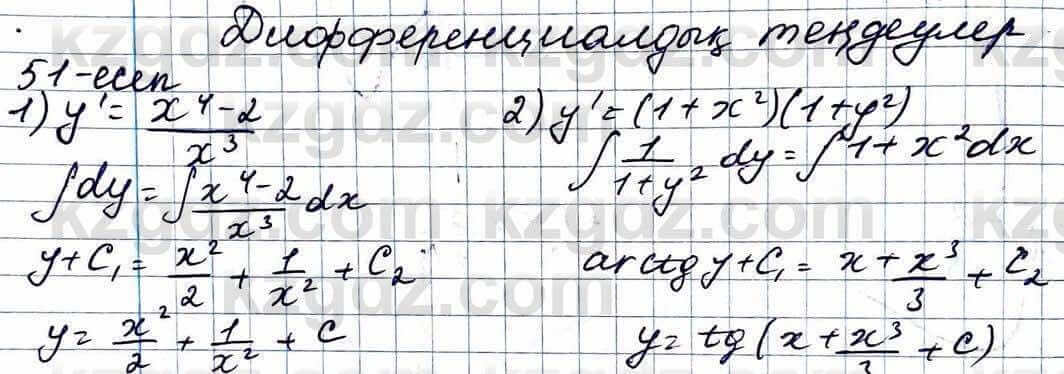 Дифференциалдық теңдеулер
51-есеп
1) y' = (x⁴-2)/x³
∫dy = ∫(x⁴-2)/x³ dx
y+C₁ = x²/2 + 1/x² + C₂
y = x²/2 + 1/x² + C
2) y' = (1+x²)(1+y²)
∫1/(1+y²) dy = ∫1+x²dx
arctg y+C₁ = x+x³/3 + C₂
y = tg(x+x³/3 + C)
kzgdz.com